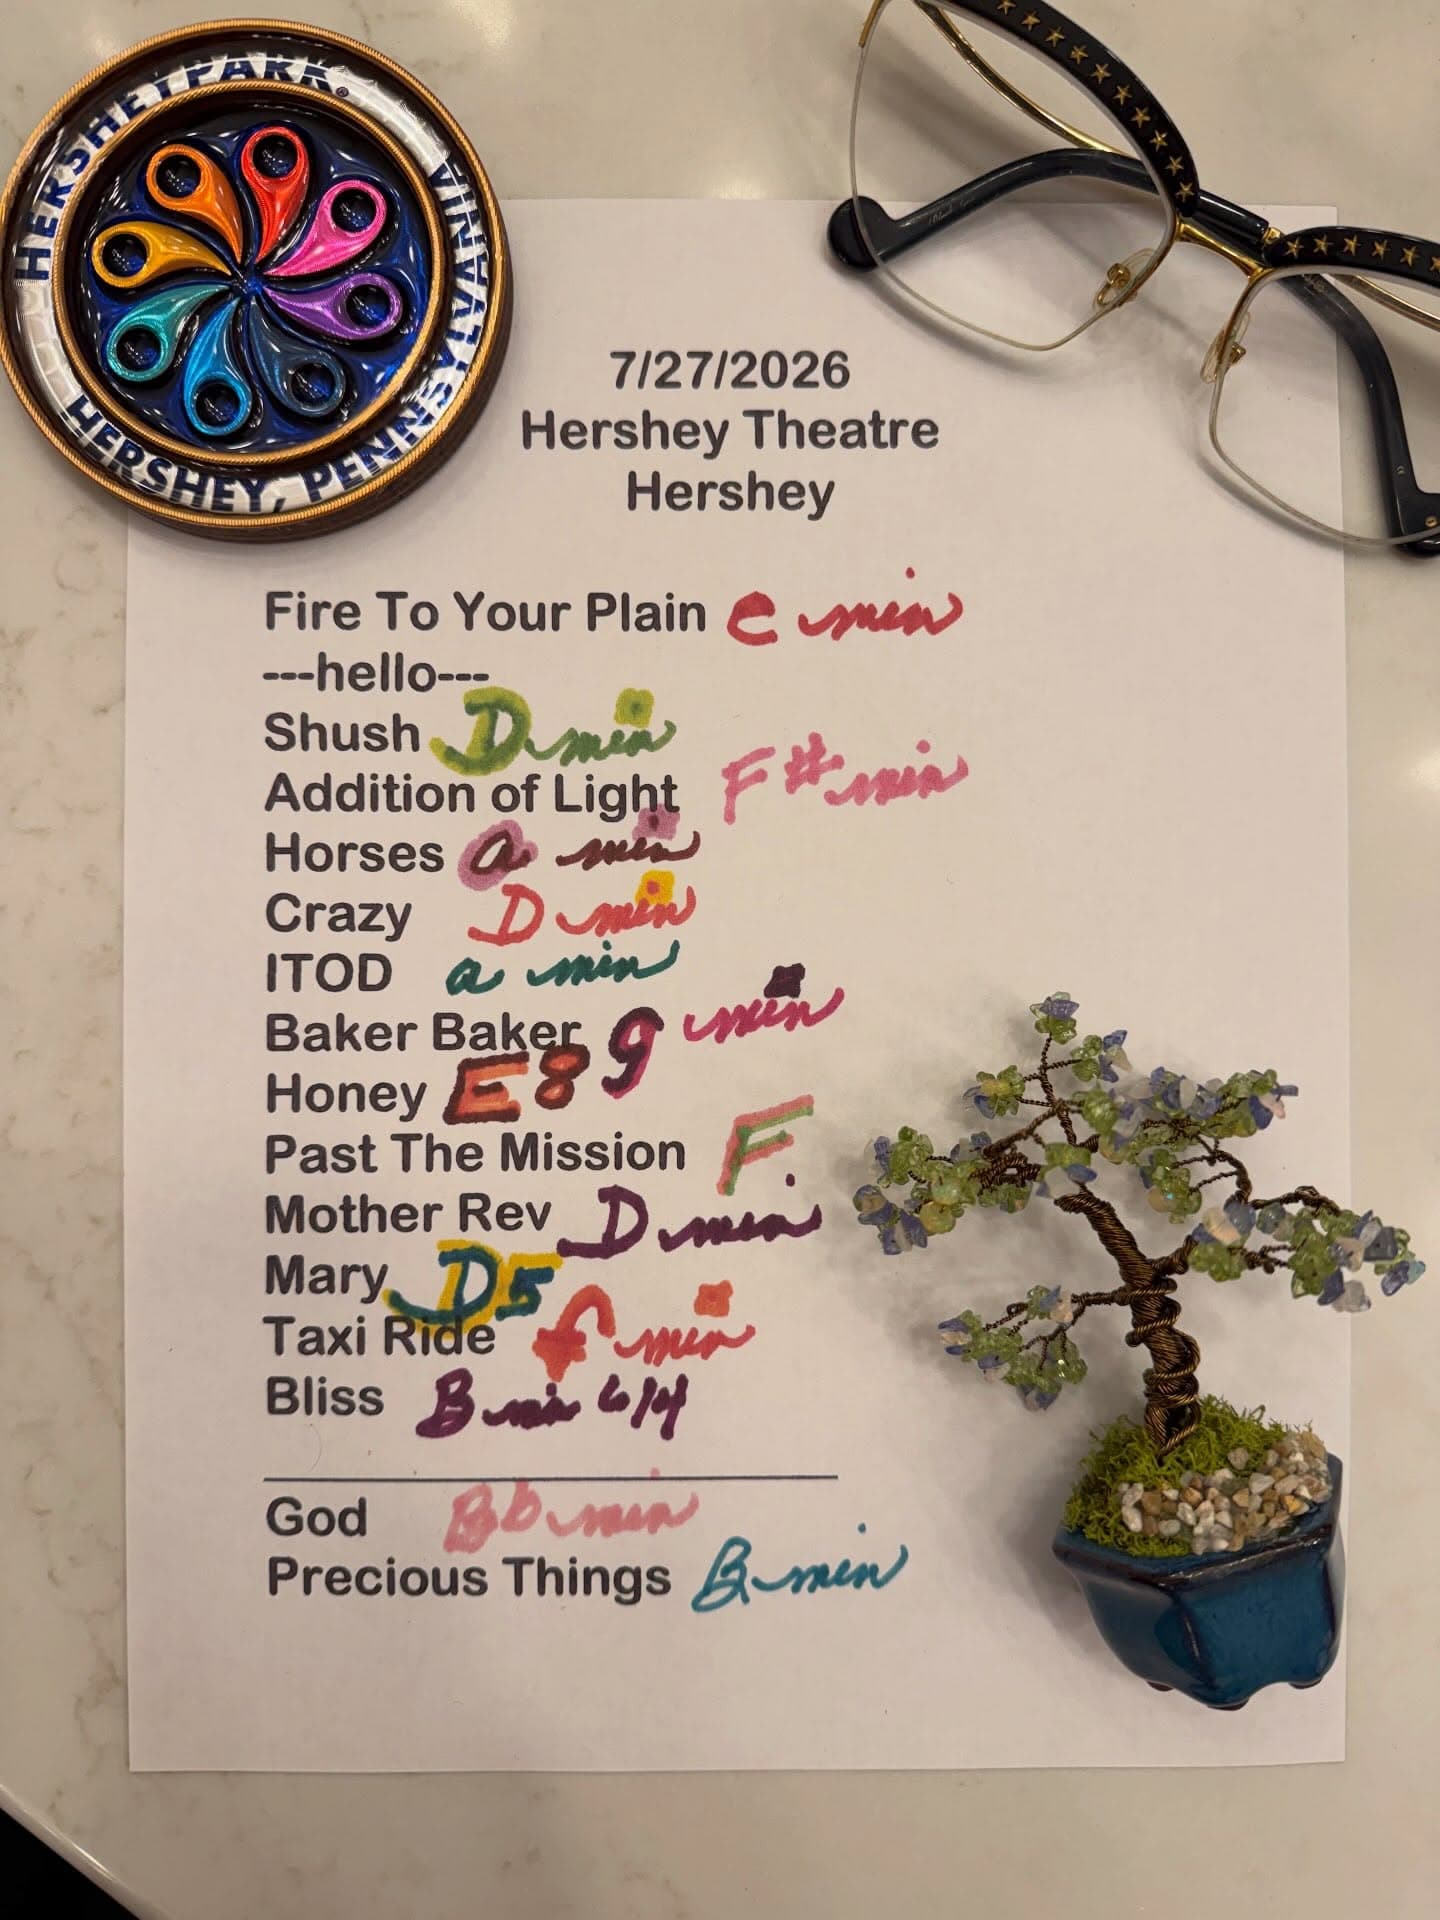 HERSHEYPARK.
HERSHEY, PENNSYLVANIA
7/27/2026
Hershey Theatre
Hershey
Fire To Your Plain e min
---hello---
Shush D min
Addition of Light F# min
Horses a min
Crazy D min
ITOD a min
Baker Baker g min
Honey E8
Past The Mission F
Mother Rev D min
Mary D5
Taxi Ride f min
Bliss B min 6/4
God Bb min
Precious Things B min